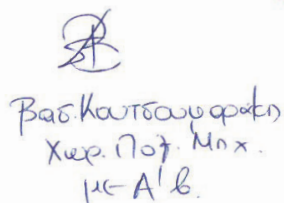 Βασ. Κουτσουμαράκη
Χωρ. Πολ. Μηχ.
με Α' β.